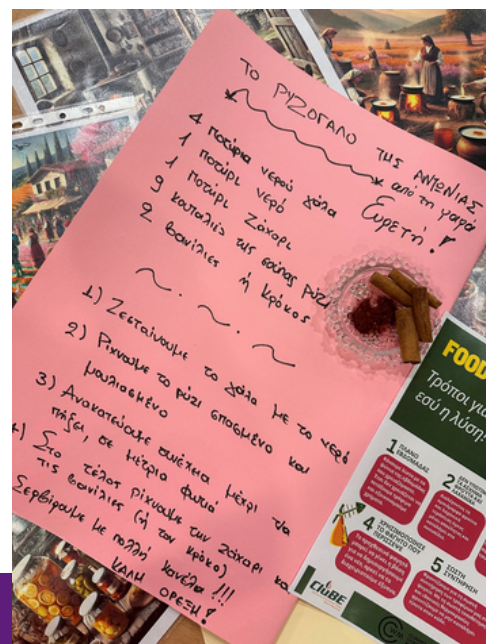 ΤΟ ΡΥΖΟΓΑΛΟ ΤΗΣ ΑΝΤΩΝΙΑΣ
από τη γαρά
Ευρετή!
4 ποτήρια νερού γάλα
1 ποτήρι νερό
1 ποτήρι ζάχαρι
9 κουταλιές της σούπας ρύζι
2 βανίλιες ή κρόκος
1) Ζεσταίνουμε το γάλα με το νερό
2) Ρίχνουμε το ρύζι σπασμένο και
μουλιασμένο
3) Ανακατεύουμε συνέχεια μέχρι να
πήξει, σε μέτρια φωτιά
4) Στο τέλος ρίχνουμε την ζάχαρι και
τις βανίλιες (ή τον κρόκο)
Σερβίρουμε με πολλή κανέλα!!!
ΚΑΛΗ ΟΡΕΞΗ!
FOOD
Τρόποι για
εσύ η λύση!
1 ΠΛΑΝΟ
ΕΒΔΟΜΑΔΑΣ
2
4 ΧΡΗΣΙΜΟΠΟΙΗΣΕ
ΤΟ ΦΑΓΗΤΟ ΠΟΥ
ΠΕΡΙΣΣΕΨΕ
5 ΣΩΣΤΗ
ΣΥΝΤΗΡΗΣΗ
CluBE